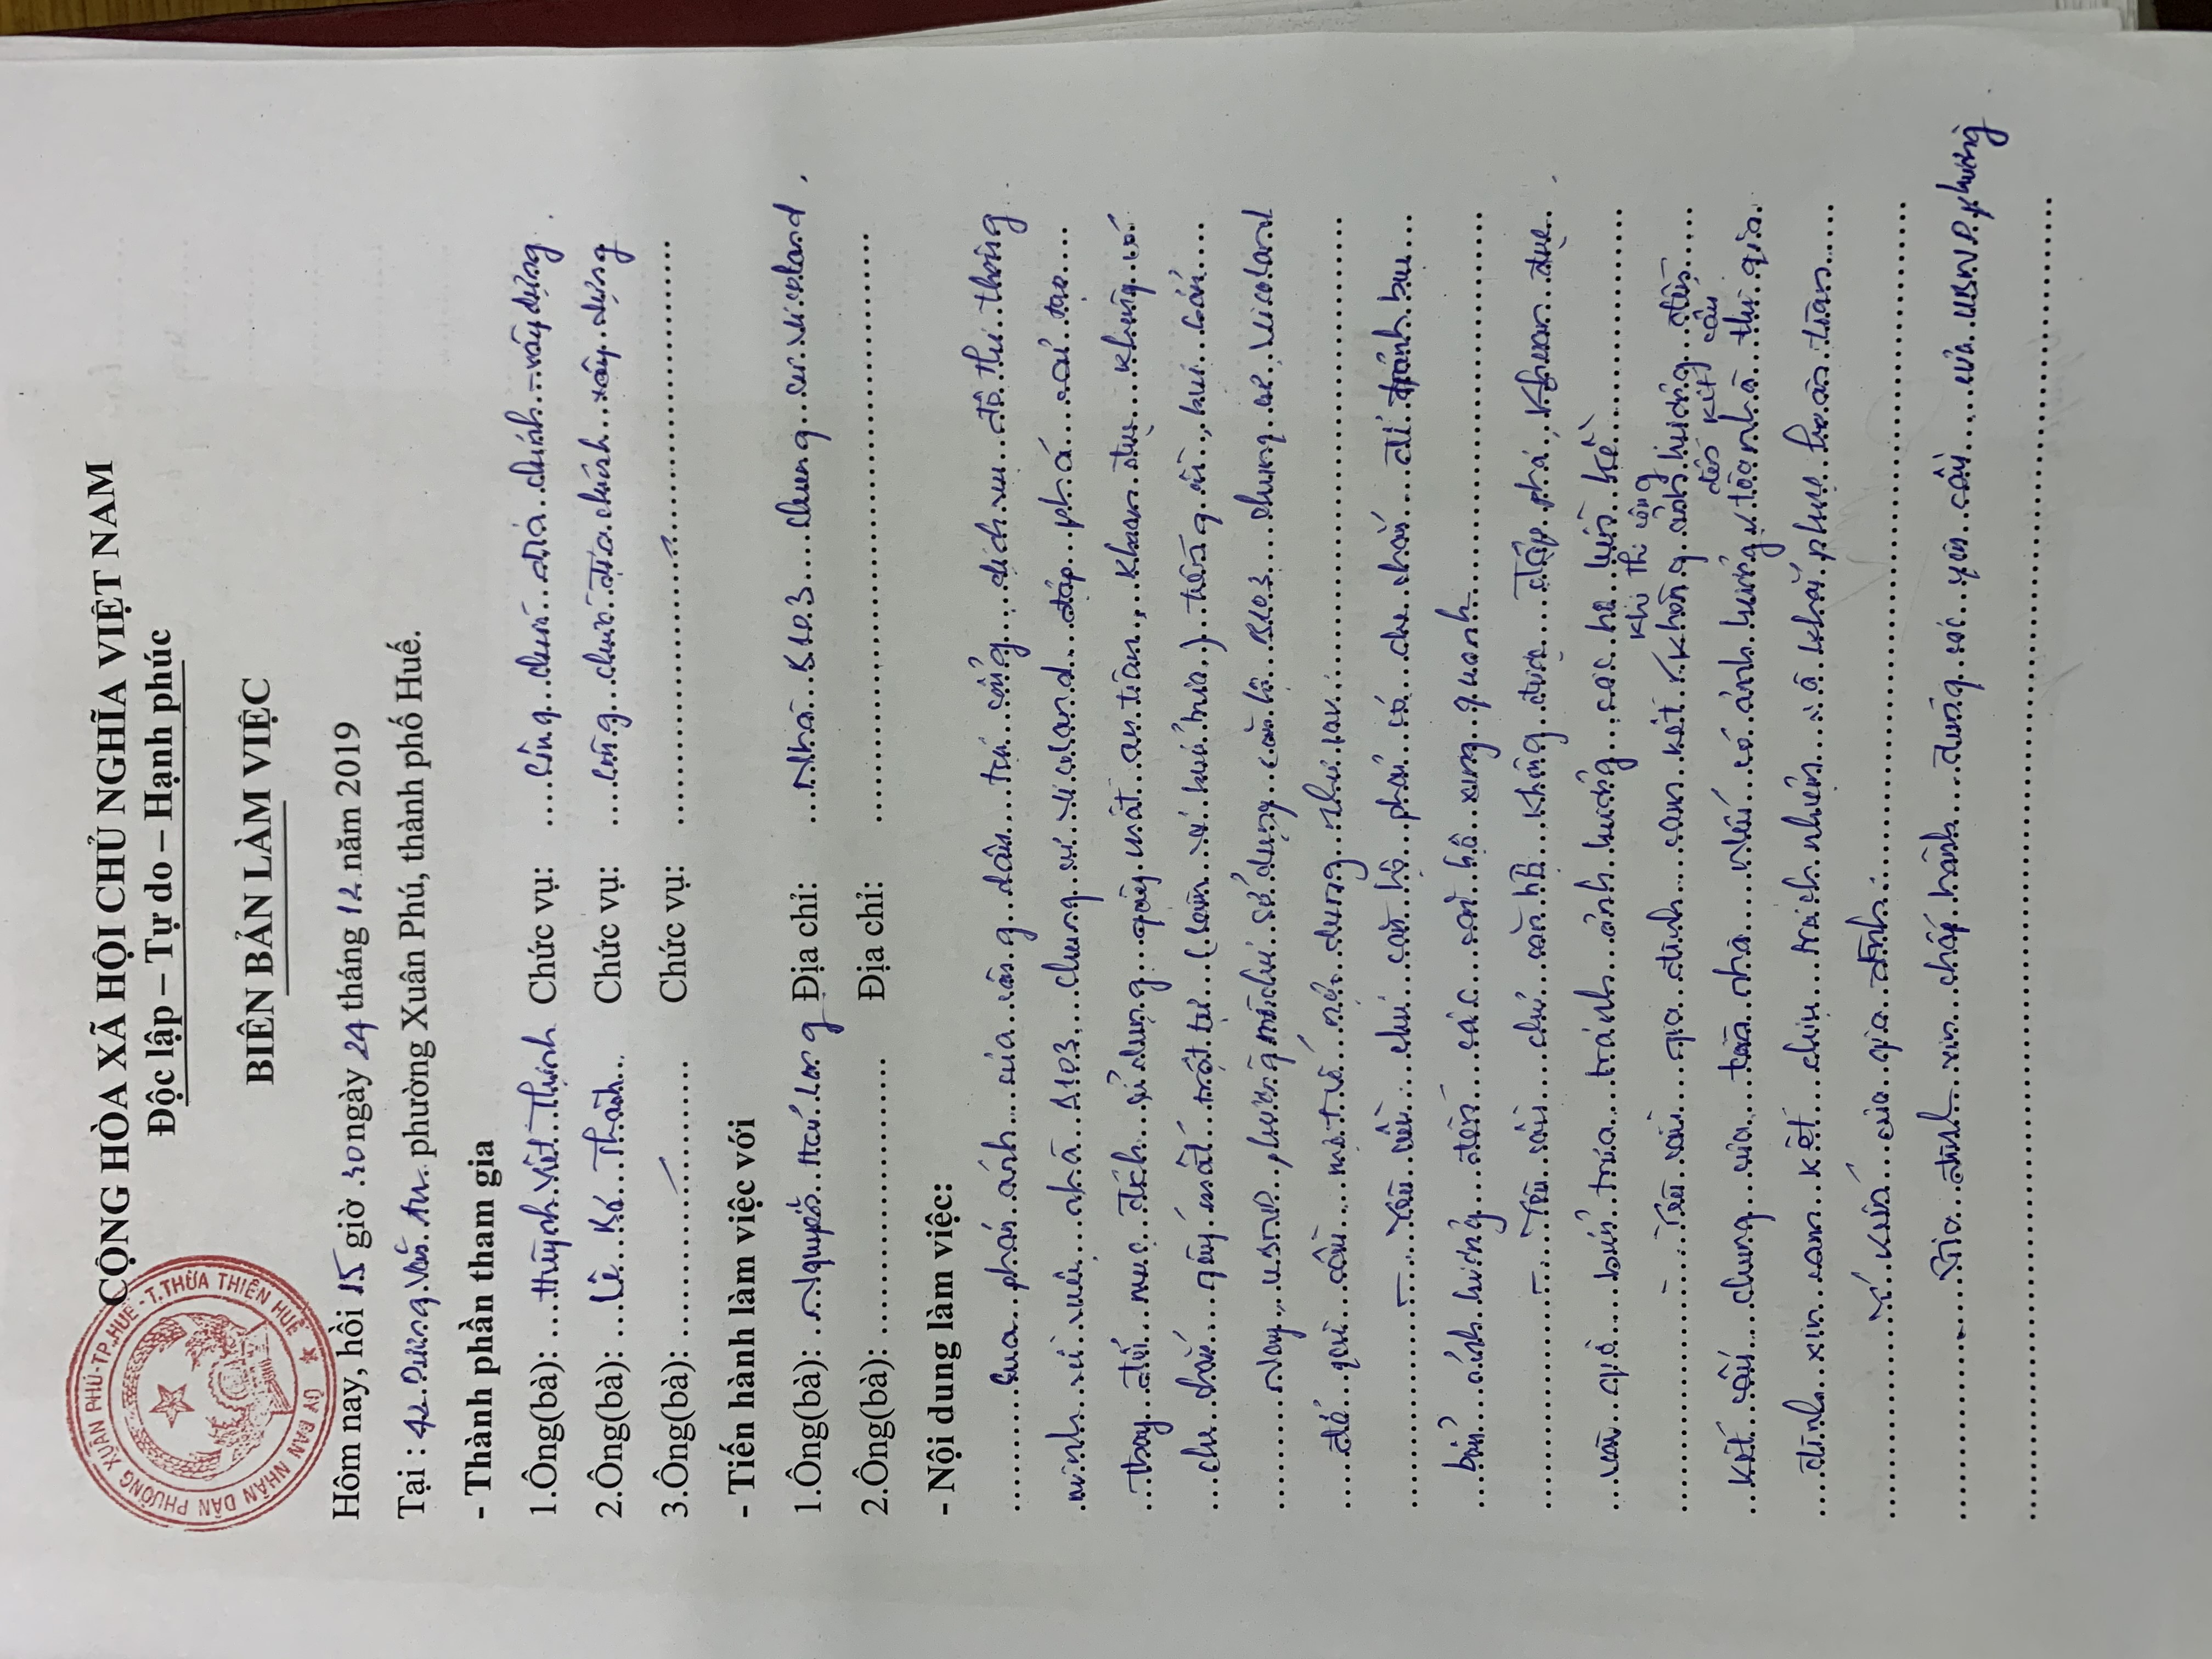 CỘNG HÒA XÃ HỘI CHỦ NGHĨA VIỆT NAM
Độc lập – Tự do – Hạnh phúc
BIÊN BẢN LÀM VIỆC
ỦY BAN NHÂN DÂN PHƯỜNG XUÂN PHÚ-TP.HUẾ-T.THỪA THIÊN HUẾ
Hôm nay, hồi 15 giờ 30 ngày 24 tháng 12 năm 2019
Tại : 42 Dương Văn An phường Xuân Phú, thành phố Huế.
- Thành phần tham gia
1.Ông(bà): Huỳnh Viết Thịnh Chức vụ: Công chức địa chính - xây dựng
2.Ông(bà): Lê Bá Thành Chức vụ: công chức địa chính xây dựng
3.Ông(bà): Chức vụ:
- Tiến hành làm việc với
1.Ông(bà): Nguyễn Hữu Long Địa chỉ: Nhà B103 chung cư Vicoland
2.Ông(bà): Địa chỉ:
- Nội dung làm việc:
Qua phản ánh của công dân trên cổng dịch vụ đô thị thông
minh về việc nhà B103 chung cư Vicoland đập phá cải tạo
thay đổi mục đích sử dụng gây mất an toàn, khoan đục không có
che chắn gây mất trật tự (làm vào buổi trưa) tiếng ồn, bụi bẩn
Nay, UBND phường mời chủ sử dụng căn hộ B103 chung cư Vicoland
để yêu cầu một số nội dung như sau:
- Yêu cầu chủ căn hộ phải có che chắn để tránh bụi
bẩn ảnh hưởng đến các căn hộ xung quanh
- Yêu cầu chủ căn hộ không được đập phá, khoan đục
vào giờ buổi trưa tránh ảnh hưởng các hộ liền kề
- Yêu cầu gia đình cam kết khi thi công không ảnh hưởng đến
kết cấu chung của tòa nhà nếu có ảnh hưởng đến kết cấu tòa nhà thì gia
đình xin cam kết chịu trách nhiệm và khắc phục hoàn toàn
Ý kiến của gia đình:
Gia đình xin chấp hành đúng các yêu cầu của UBND phường